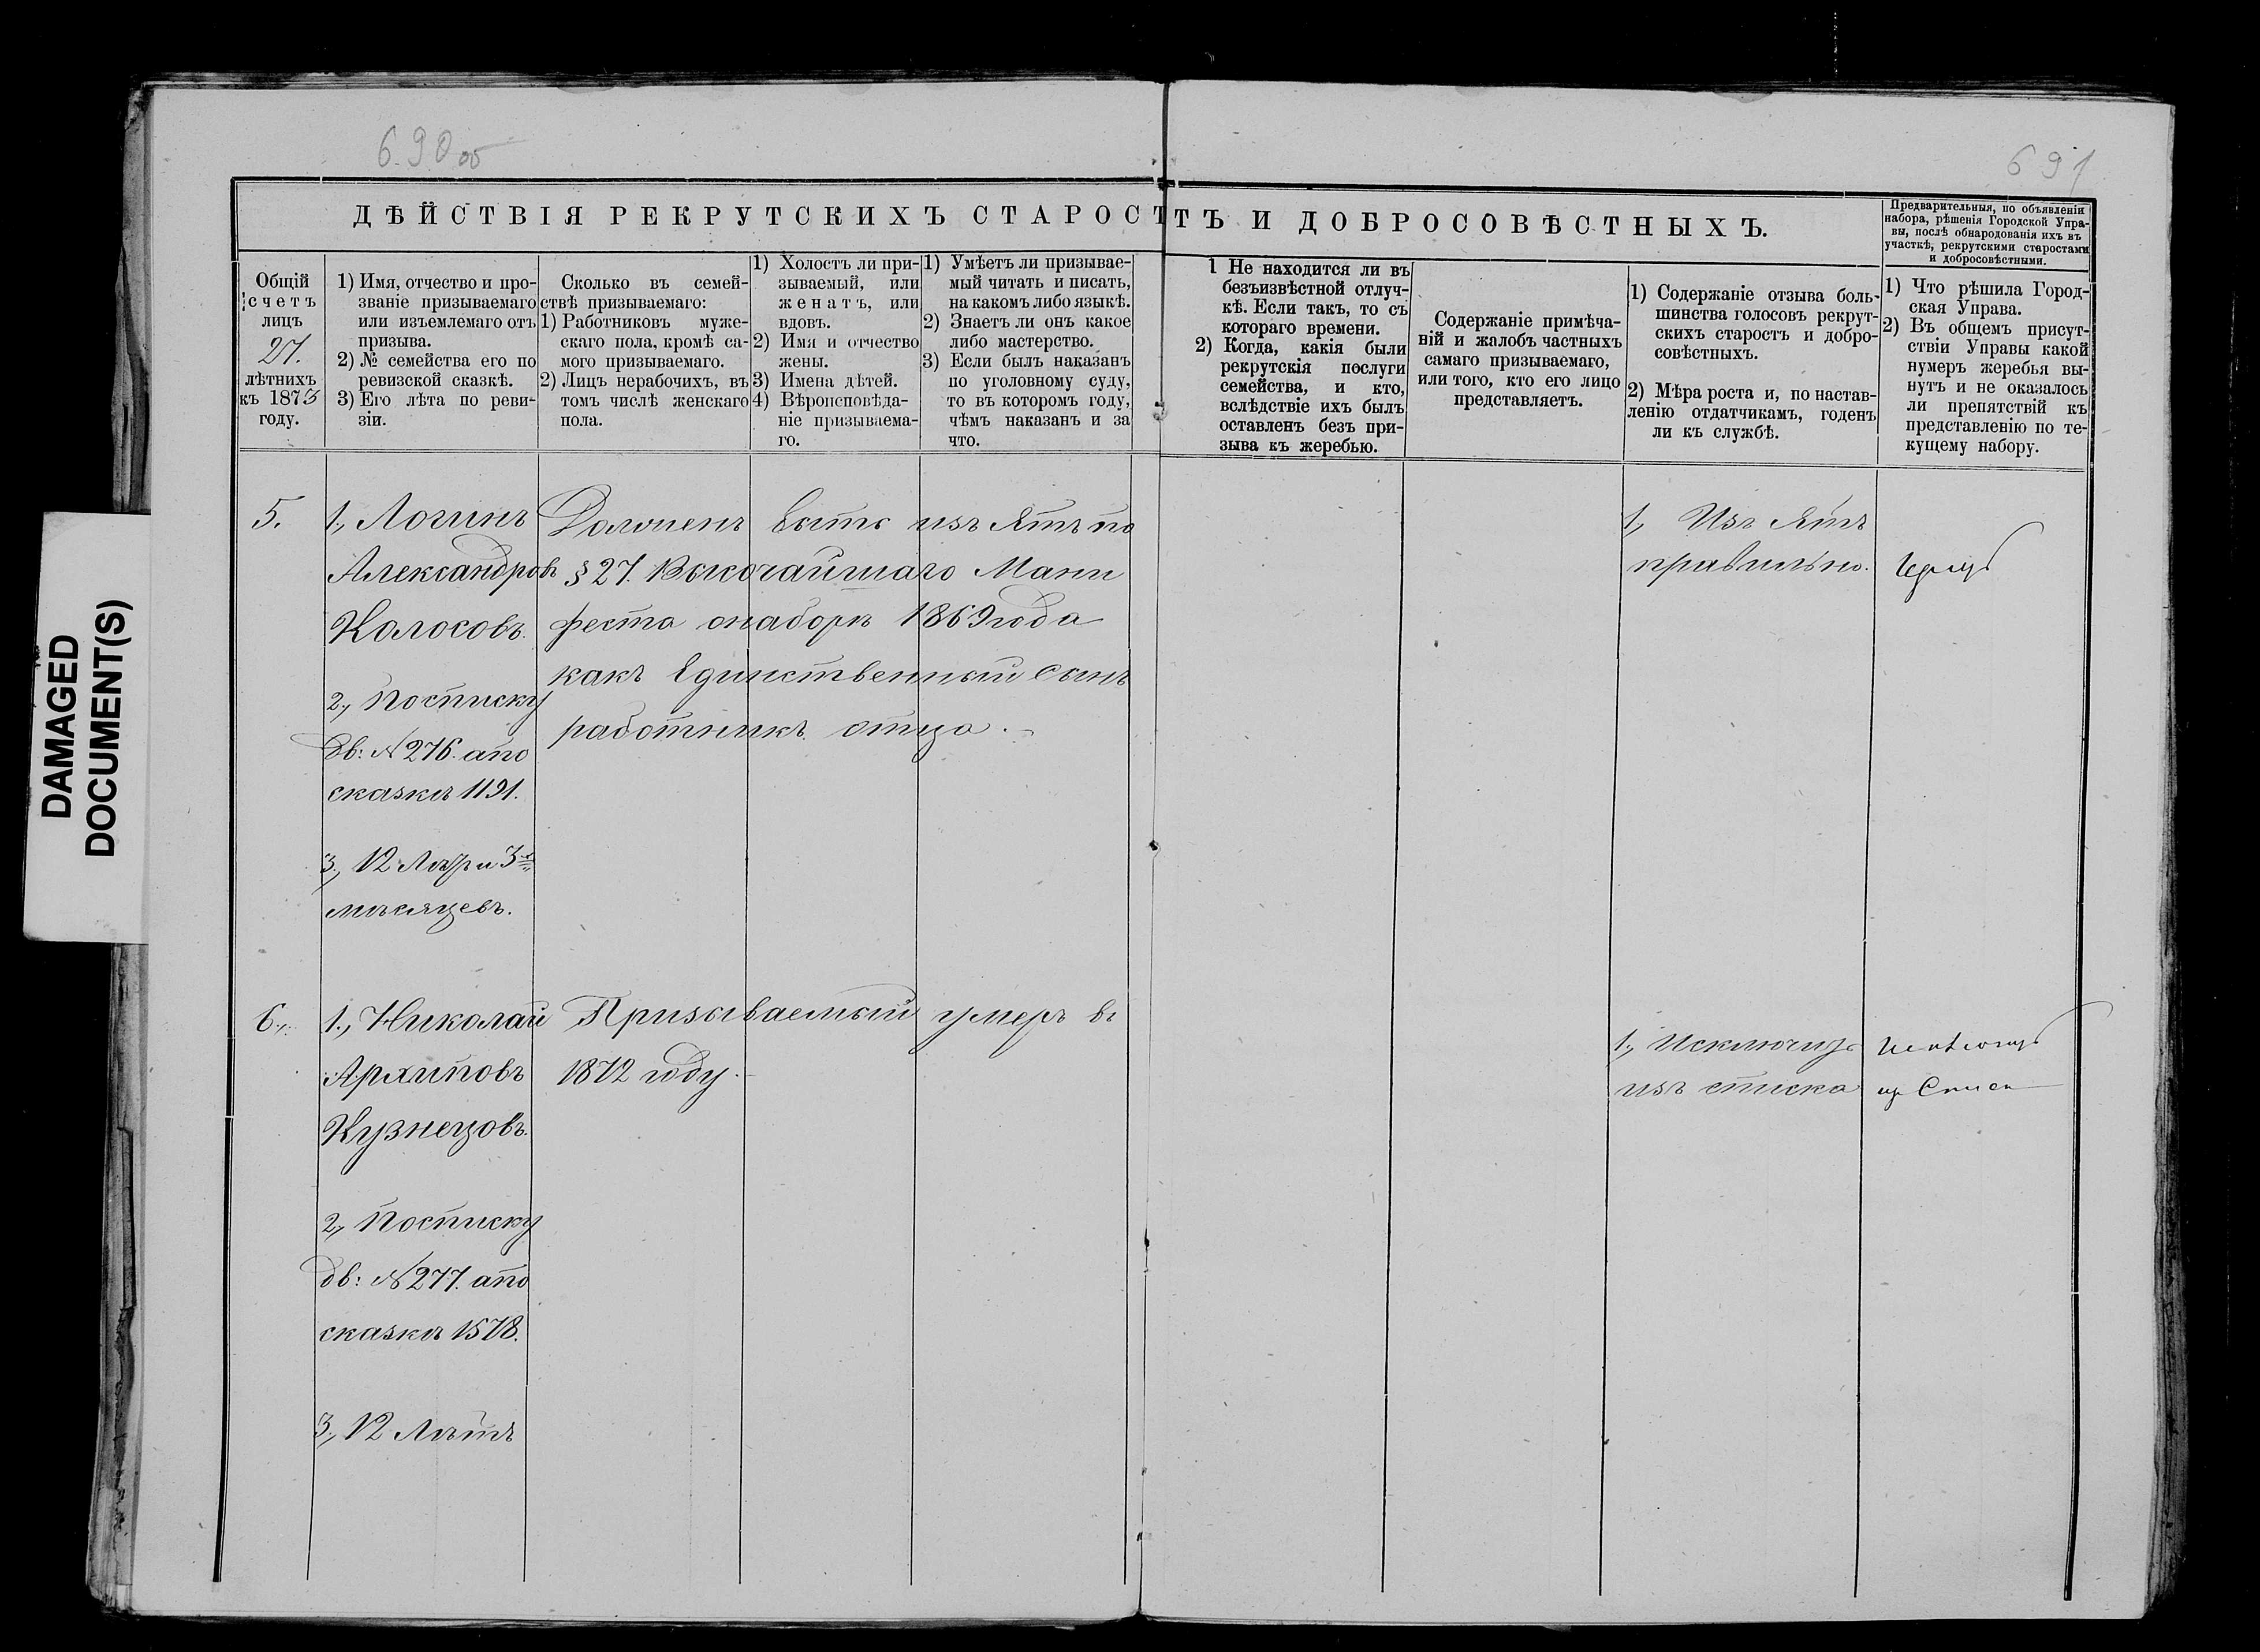 690 об
691
ДѢЙСТВІЯ РЕКРУТСКИХЪ СТАРОСТЪ И ДОБРОСОВѢСТНЫХЪ.
Предварительныя, по объявленіи
набора, рѣшенія Городской Упра-
вы, послѣ обнародованія ихъ въ
участкѣ, рекрутскими старостами
и добросовѣстными.
Общій
счетъ
лицъ
27.
лѣтнихъ
къ 1873
году.
1) Имя, отчество и про-
званіе призываемаго
или изъемлемаго отъ
призыва.
2) № семейства его по
ревизской сказкѣ.
3) Его лѣта по реви-
зіи.
Сколько въ семей-
ствѣ призываемаго:
1) Работниковъ муже-
скаго пола, кромѣ са-
мого призываемаго.
2) Лицъ нерабочихъ, въ
томъ числѣ женскаго
пола.
1) Холостъ ли при-
зываемый, или
женатъ, или
вдовъ.
2) Имя и отчество
жены.
3) Имена дѣтей.
4) Вѣроисповѣда-
ніе призываема-
го.
1) Умѣетъ ли призывае-
мый читать и писать,
на какомъ либо языкѣ.
2) Знаетъ ли онъ какое
либо мастерство.
3) Если былъ наказанъ
по уголовному суду,
то въ которомъ году,
чѣмъ наказанъ и за
что.
1 Не находится ли въ
безъизвѣстной отлуч-
кѣ. Если такъ, то съ
котораго времени.
2) Когда, какія были
рекрутскія послуги
семейства, и кто,
вслѣдствіе ихъ былъ
оставленъ безъ при-
зыва къ жеребью.
Содержаніе примѣча-
ній и жалобъ частныхъ
самаго призываемаго,
или того, кто его лицо
представляетъ.
1) Содержаніе отзыва боль-
шинства голосовъ рекрут-
скихъ старостъ и добро-
совѣстныхъ.
2) Мѣра роста и, по настав-
ленію отдатчикамъ, годенъ
ли къ службѣ.
1) Что рѣшила Город-
ская Управа.
2) Въ общемъ присут-
ствіи Управы какой
нумеръ жеребья вы-
нутъ и не оказалось
ли препятствій къ
представленію по те-
кущему набору.
5.
1., Логинъ
Александровъ
Колосовъ.
2., По списку
дв: № 276. а по
сказкѣ 1191.
3., 12 Лѣтъ и 3х
мѣсяцевъ.
Долженъ быть изъятъ по
§ 27. Высочайшаго Мани
феста о наборѣ 1869 года
какъ Единственный сынъ
работникъ отца.
1., Изъятъ
правильно.
6.,
1., Николай
Архиповъ
Кузнецовъ.
2., По списку
дв: № 277. а по
сказкѣ 1578.
3., 12 Лѣтъ
Призываемый умеръ въ
1872 году.
1., Исключить
изъ списка
DAMAGED
DOCUMENT(S)